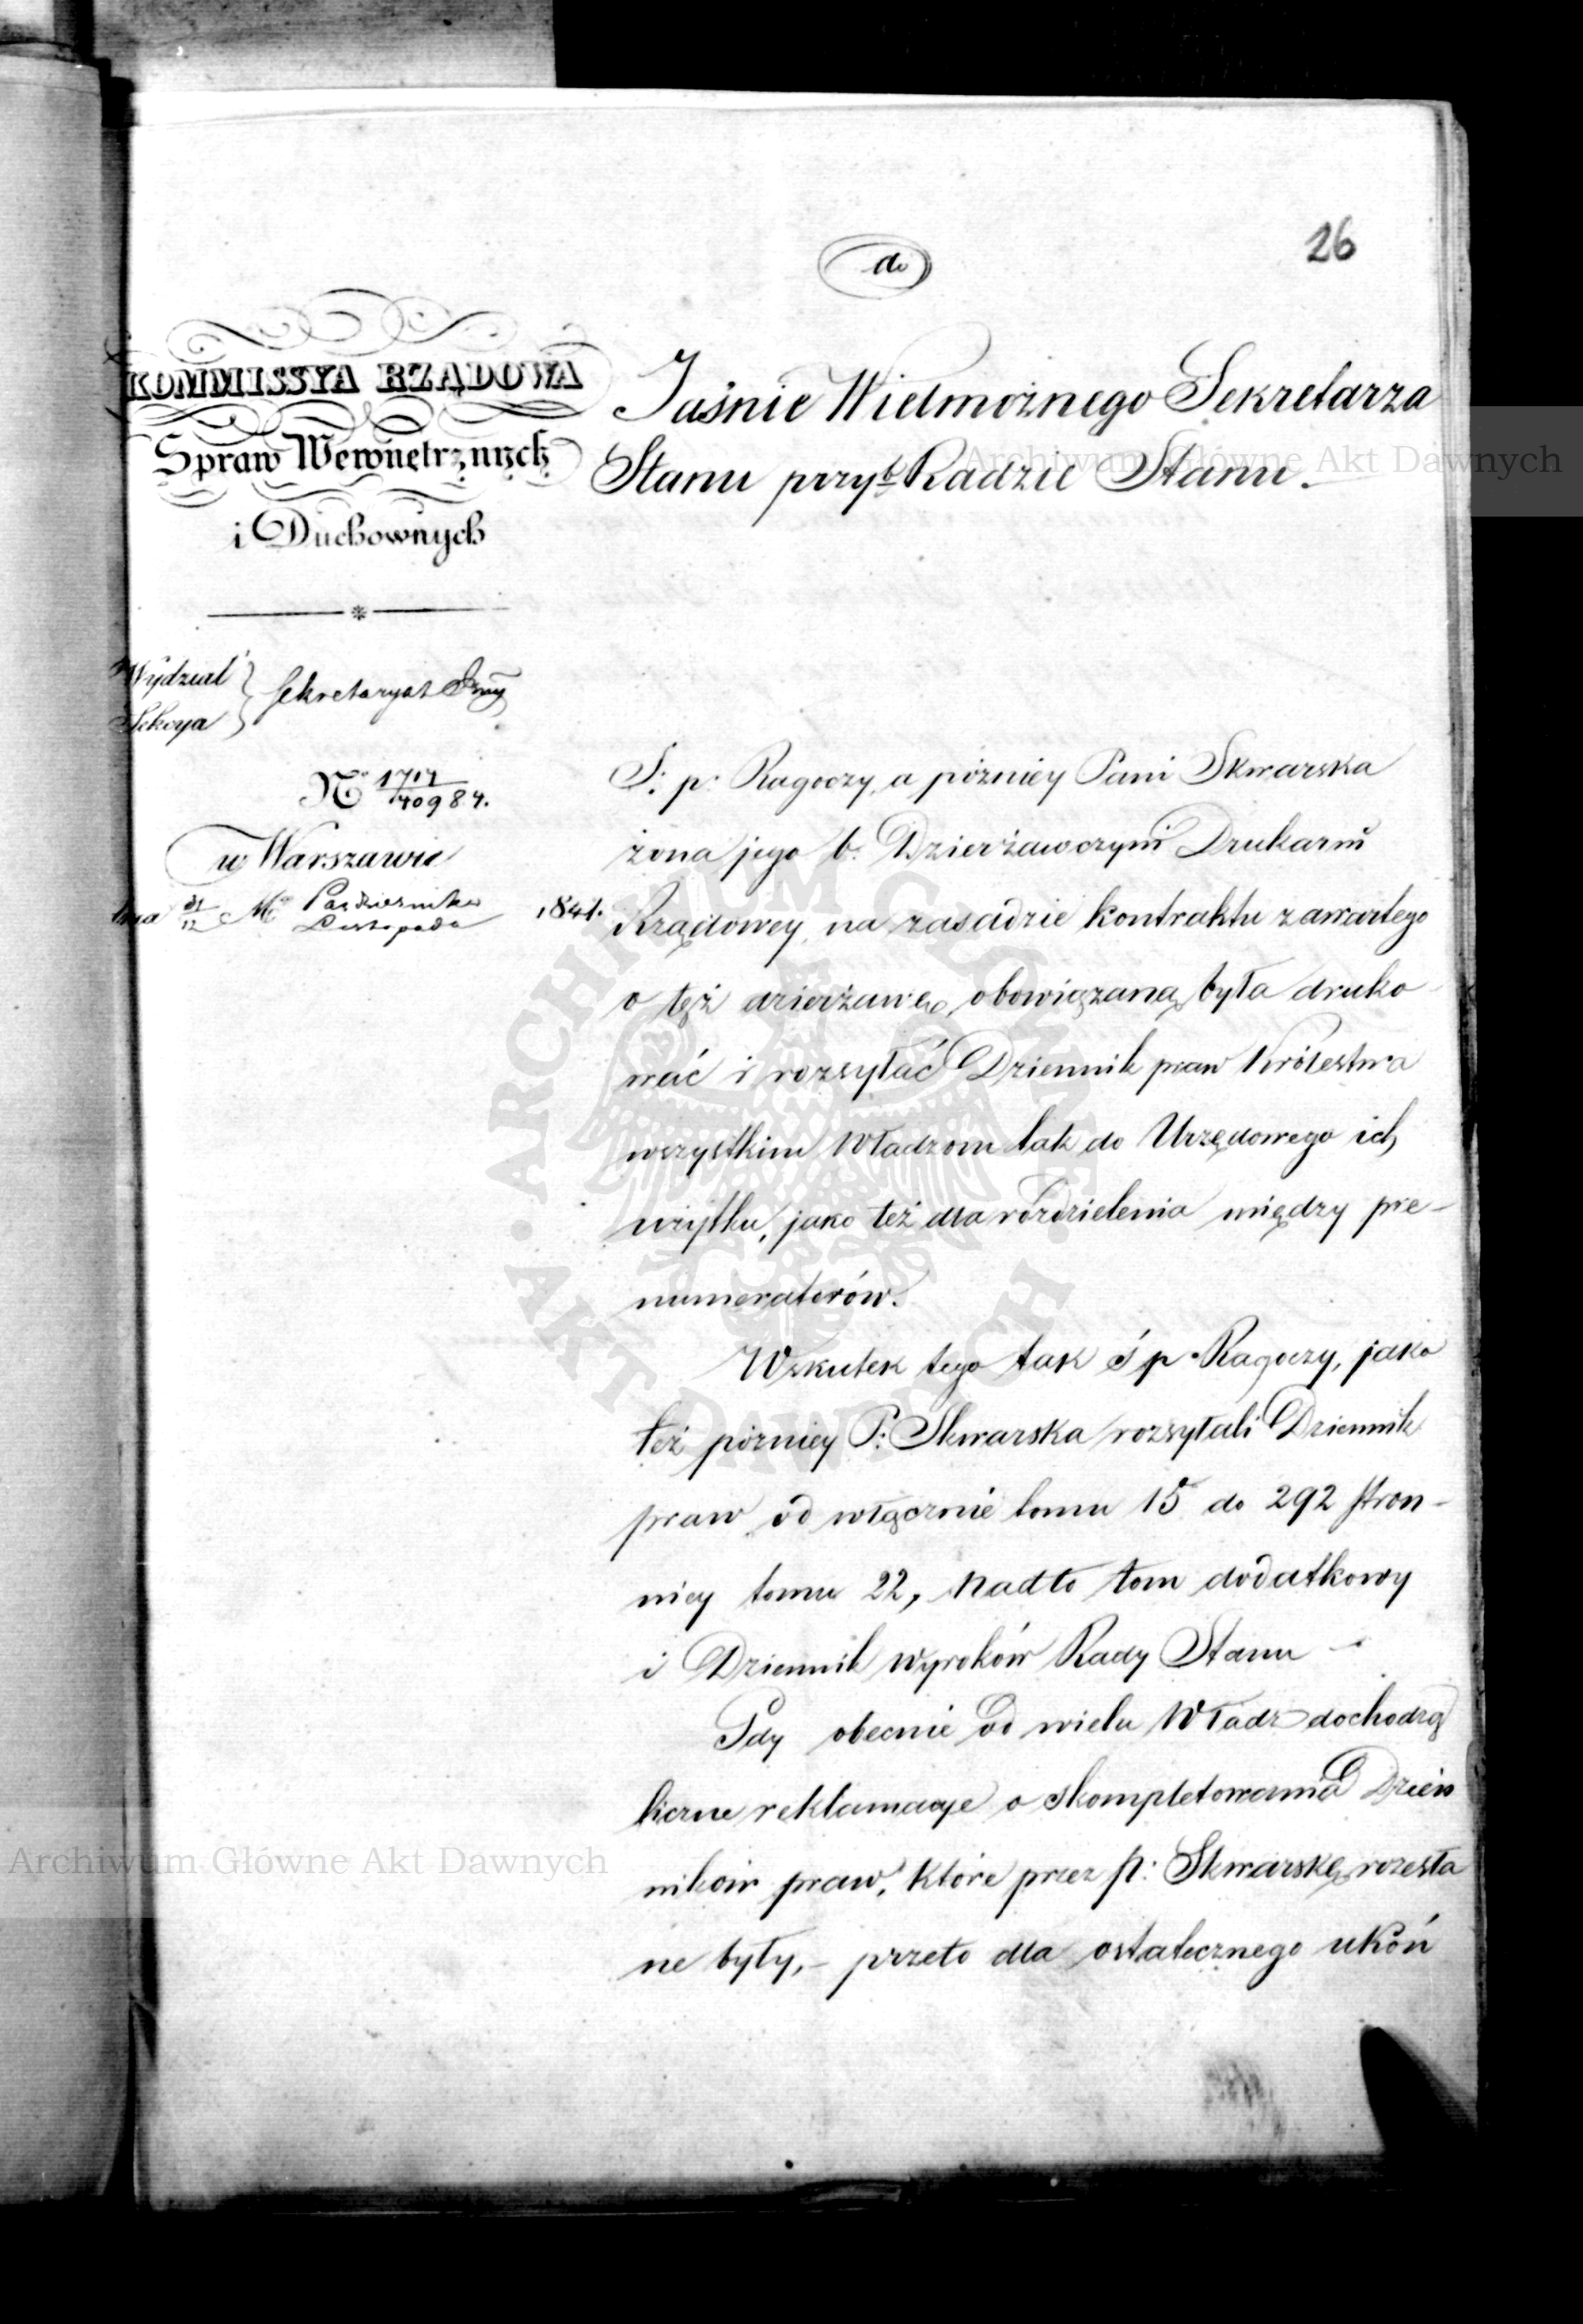 26
do
KOMMISSYA RZĄDOWA
Spraw Wewnętrznych
i Duchownych
Jaśnie Wielmożnego Sekretarza
Stanu przy b. Radzie Stanu.
Wydział
Sekcya
Sekretaryat
Nº 1717
40984.
w Warszawie
dnia 31/12 Mca Października
Listopada
1841.
Ś. p. Ragoczy, a pózniey Pani Skwarska
żona jego b. Dzierżawczyni Drukarni
Rządowey, na zasadzie kontraktu zawartego
o tęż dzierżawę, obowiązaną była druko
wać i rozsyłać Dziennik praw Królestwa
wszystkim Władzom tak do Urzędowego ich
użytku, jako też dla rozdzielenia między pre-
numeratorów.
Wskutek tego tak ś p Ragoczy, jako
też pózniey P: Skwarska rozsyłali Dziennik
praw od włącznie tomu 15 do 292 stron-
nicy tomu 22, nadto tom dodatkowy
i Dziennik wyroków Rady Stanu -
Gdy obecnie od wielu Władz dochodzą
liczne reklamacye o skompletowania Dzien
ników praw, które przez P: Skwarskę rozesła
ne były,- przeto dla ostatecznego ukoń
Archiwum Główne Akt Dawnych
Archiwum Główne Akt Dawnych
ARCHIWUM GŁÓWNE
AKT DAWNYCH